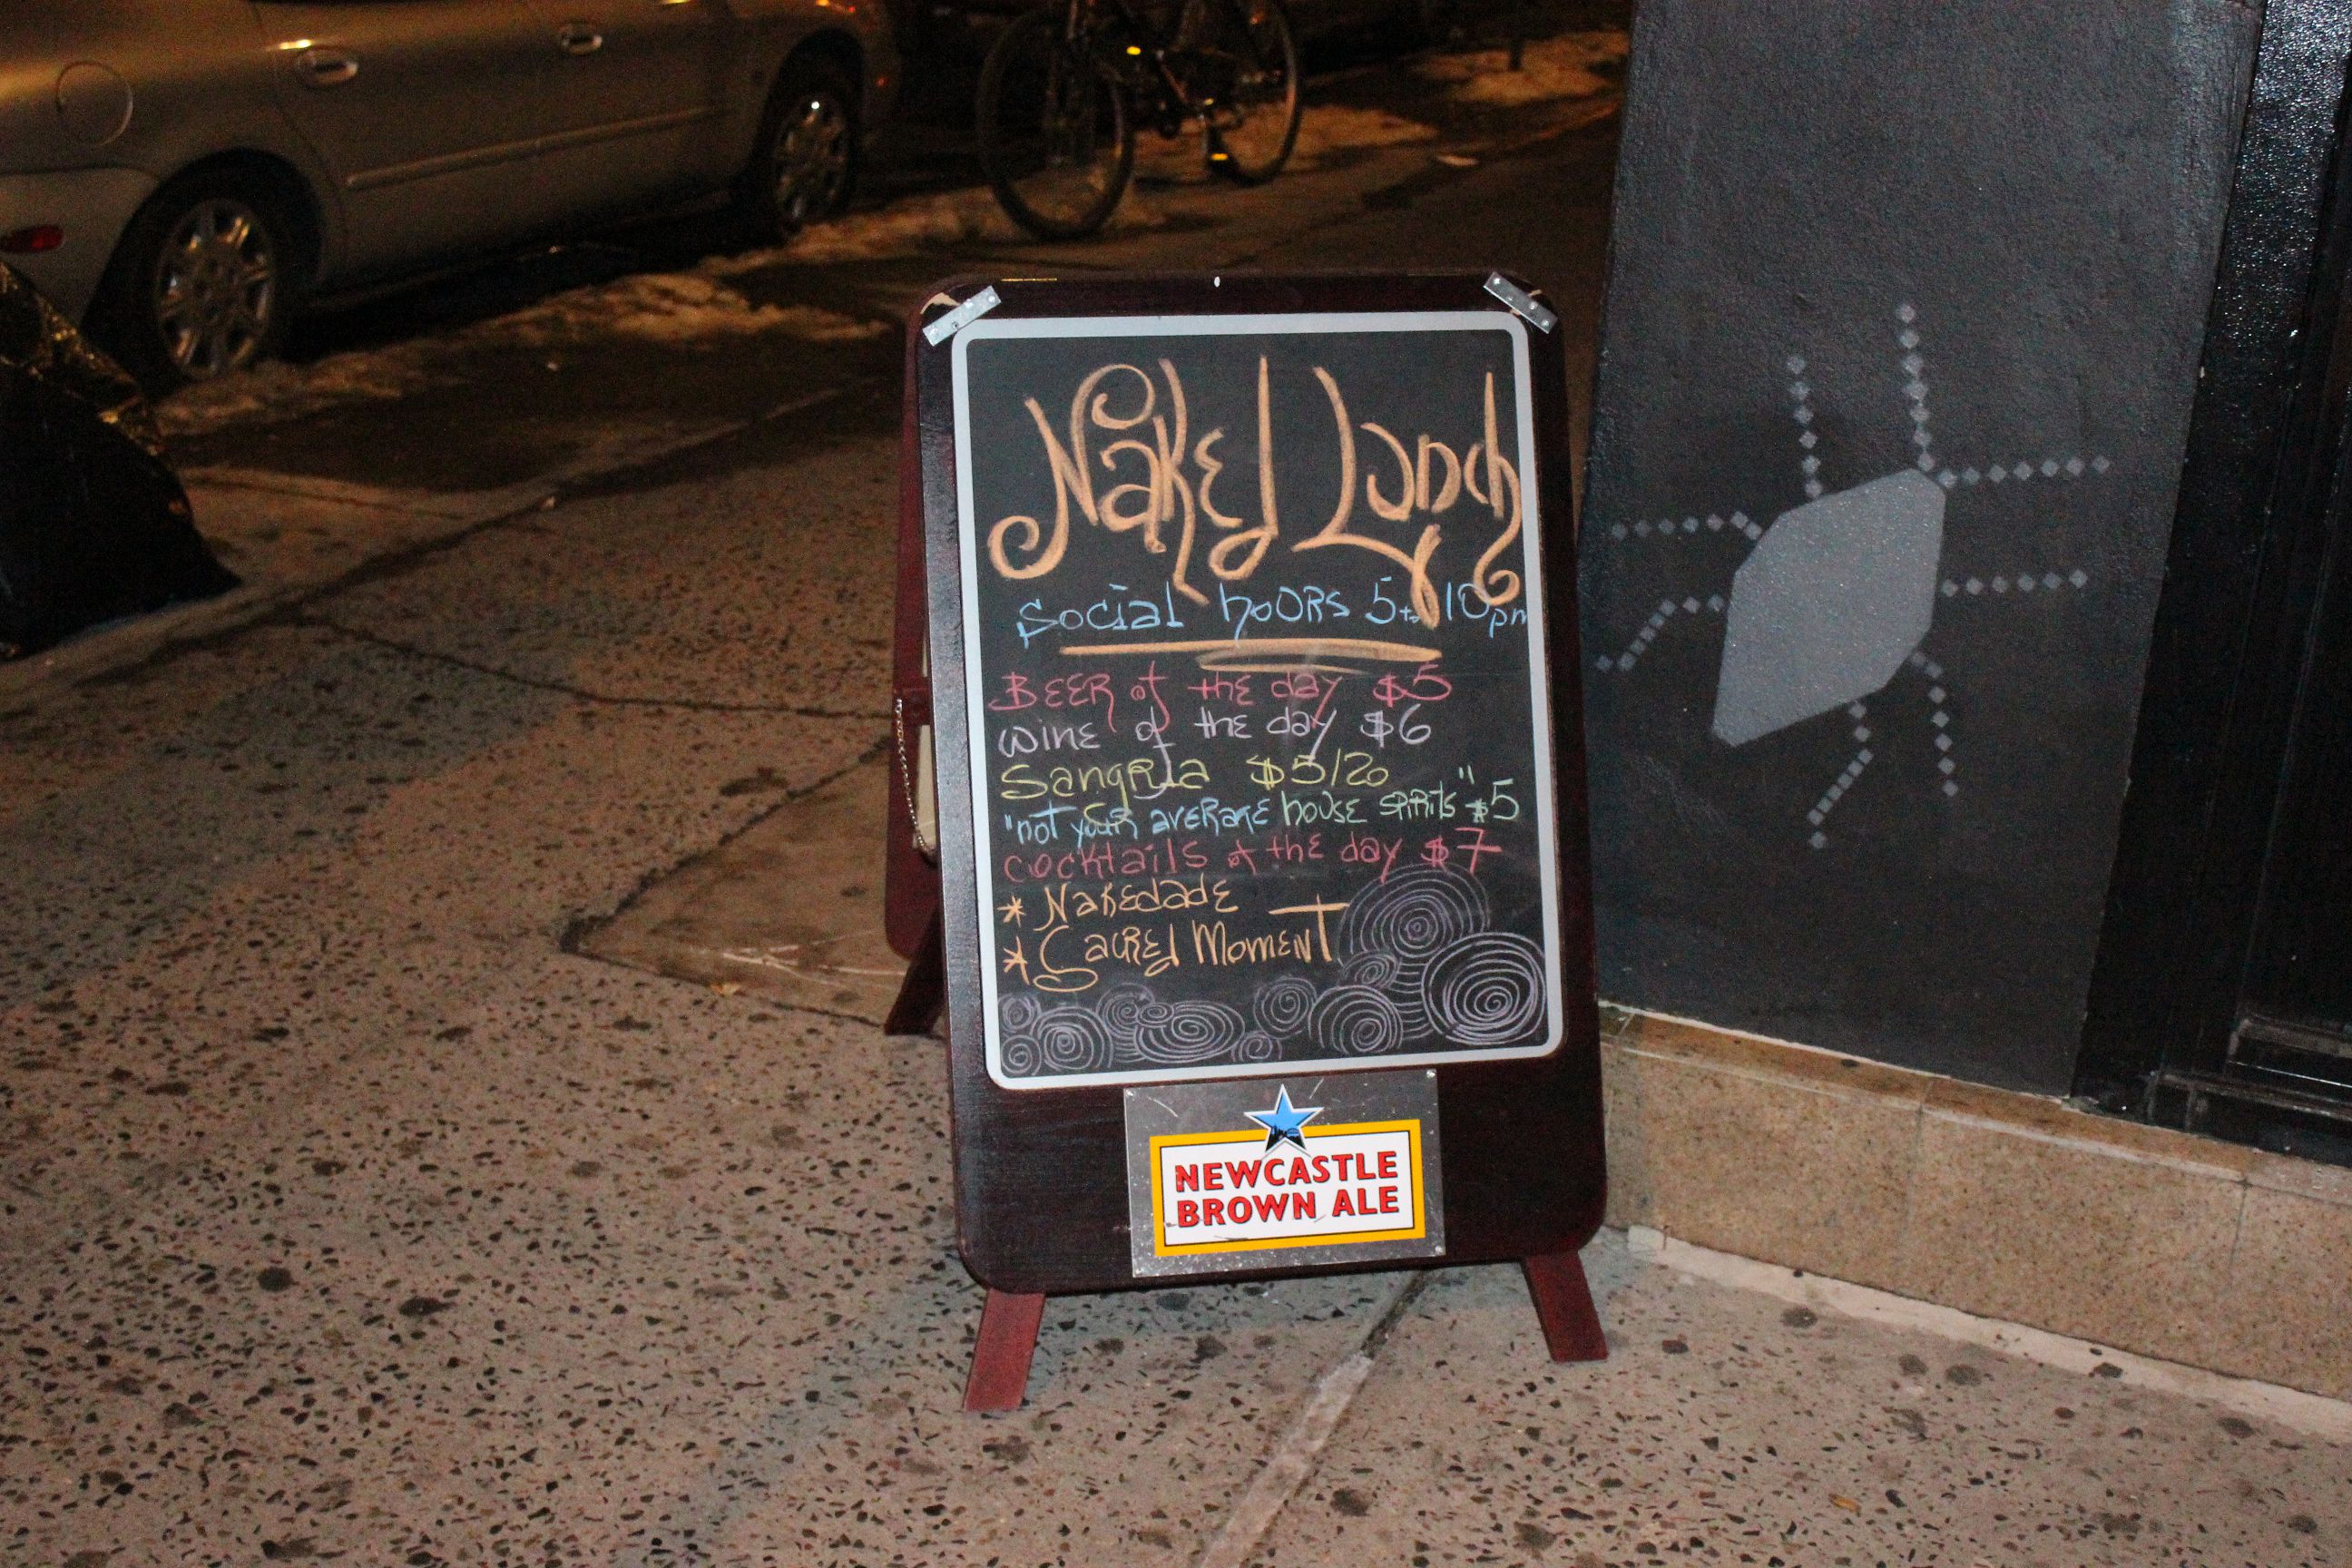 Naked Lunch
Social hours 5 to 10pm
Beer of the day $5
wine of the day $6
Sangria $5/20
"not your average house spirits" $5
cocktails of the day $7
* Nakedade
* Sacred Moment
NEWCASTLE
BROWN ALE